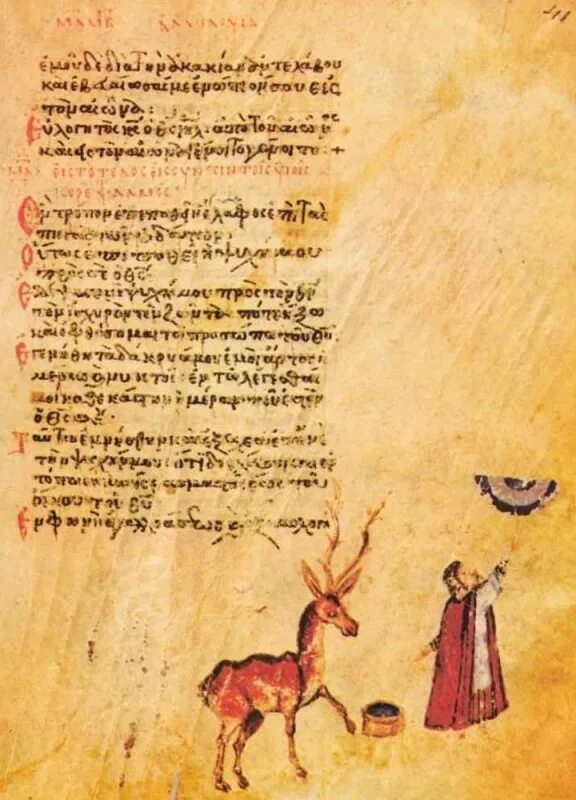 ἐμοῦ δὲ διὰ τὴν ἀκακίαν ἀντελάβου
καὶ ἐβεβαίωσάς με ἐνώπιόν σου εἰς
τὸν αἰῶνα·
Εὐλογητὸς κς ὁ θς ιηλ ἀπὸ τοῦ αἰῶνος
καὶ εἰς τὸν αἰῶνα γένοιτο γένοιτο +
εἰς τὸ τέλος εἰς σύνεσιν τοῖς υἱοῖς
κορὲ ψαλμός
Ὃν τρόπον ἐπιποθεῖ ἡ ἔλαφος ἐπὶ τὰς
πηγὰς τῶν ὑδάτων·
Οὕτως ἐπιποθεῖ ἡ ψυχή μου
πρός σε ὁ θς
Ἐδίψησεν ἡ ψυχή μου πρὸς τὸν θν
τὸν ἰσχυρὸν τὸν ζῶντα πότε ἥξω
καὶ ὀφθήσομαι τῷ προσώπῳ τοῦ θυ
Ἐγενήθη τὰ δάκρυά μου ἐμοὶ ἄρτος ἡ
μέρας καὶ νυκτὸς ἐν τῷ λέγεσθαί
μοι καθ' ἑκάστην ἡμέραν ποῦ ἐστιν
ὁ θς σου·
Ταῦτα ἐμνήσθην καὶ ἐξέχεα ἐπ' ἐμὲ
τὴν ψυχήν μου ὅτι διελεύσομαι ἐν
τόπῳ σκηνῆς θαυμαστῆς ἕως τοῦ
οἴκου τοῦ θυ
Ἐν φωνῇ ἀγαλλιάσεως καὶ ἐξομολογή